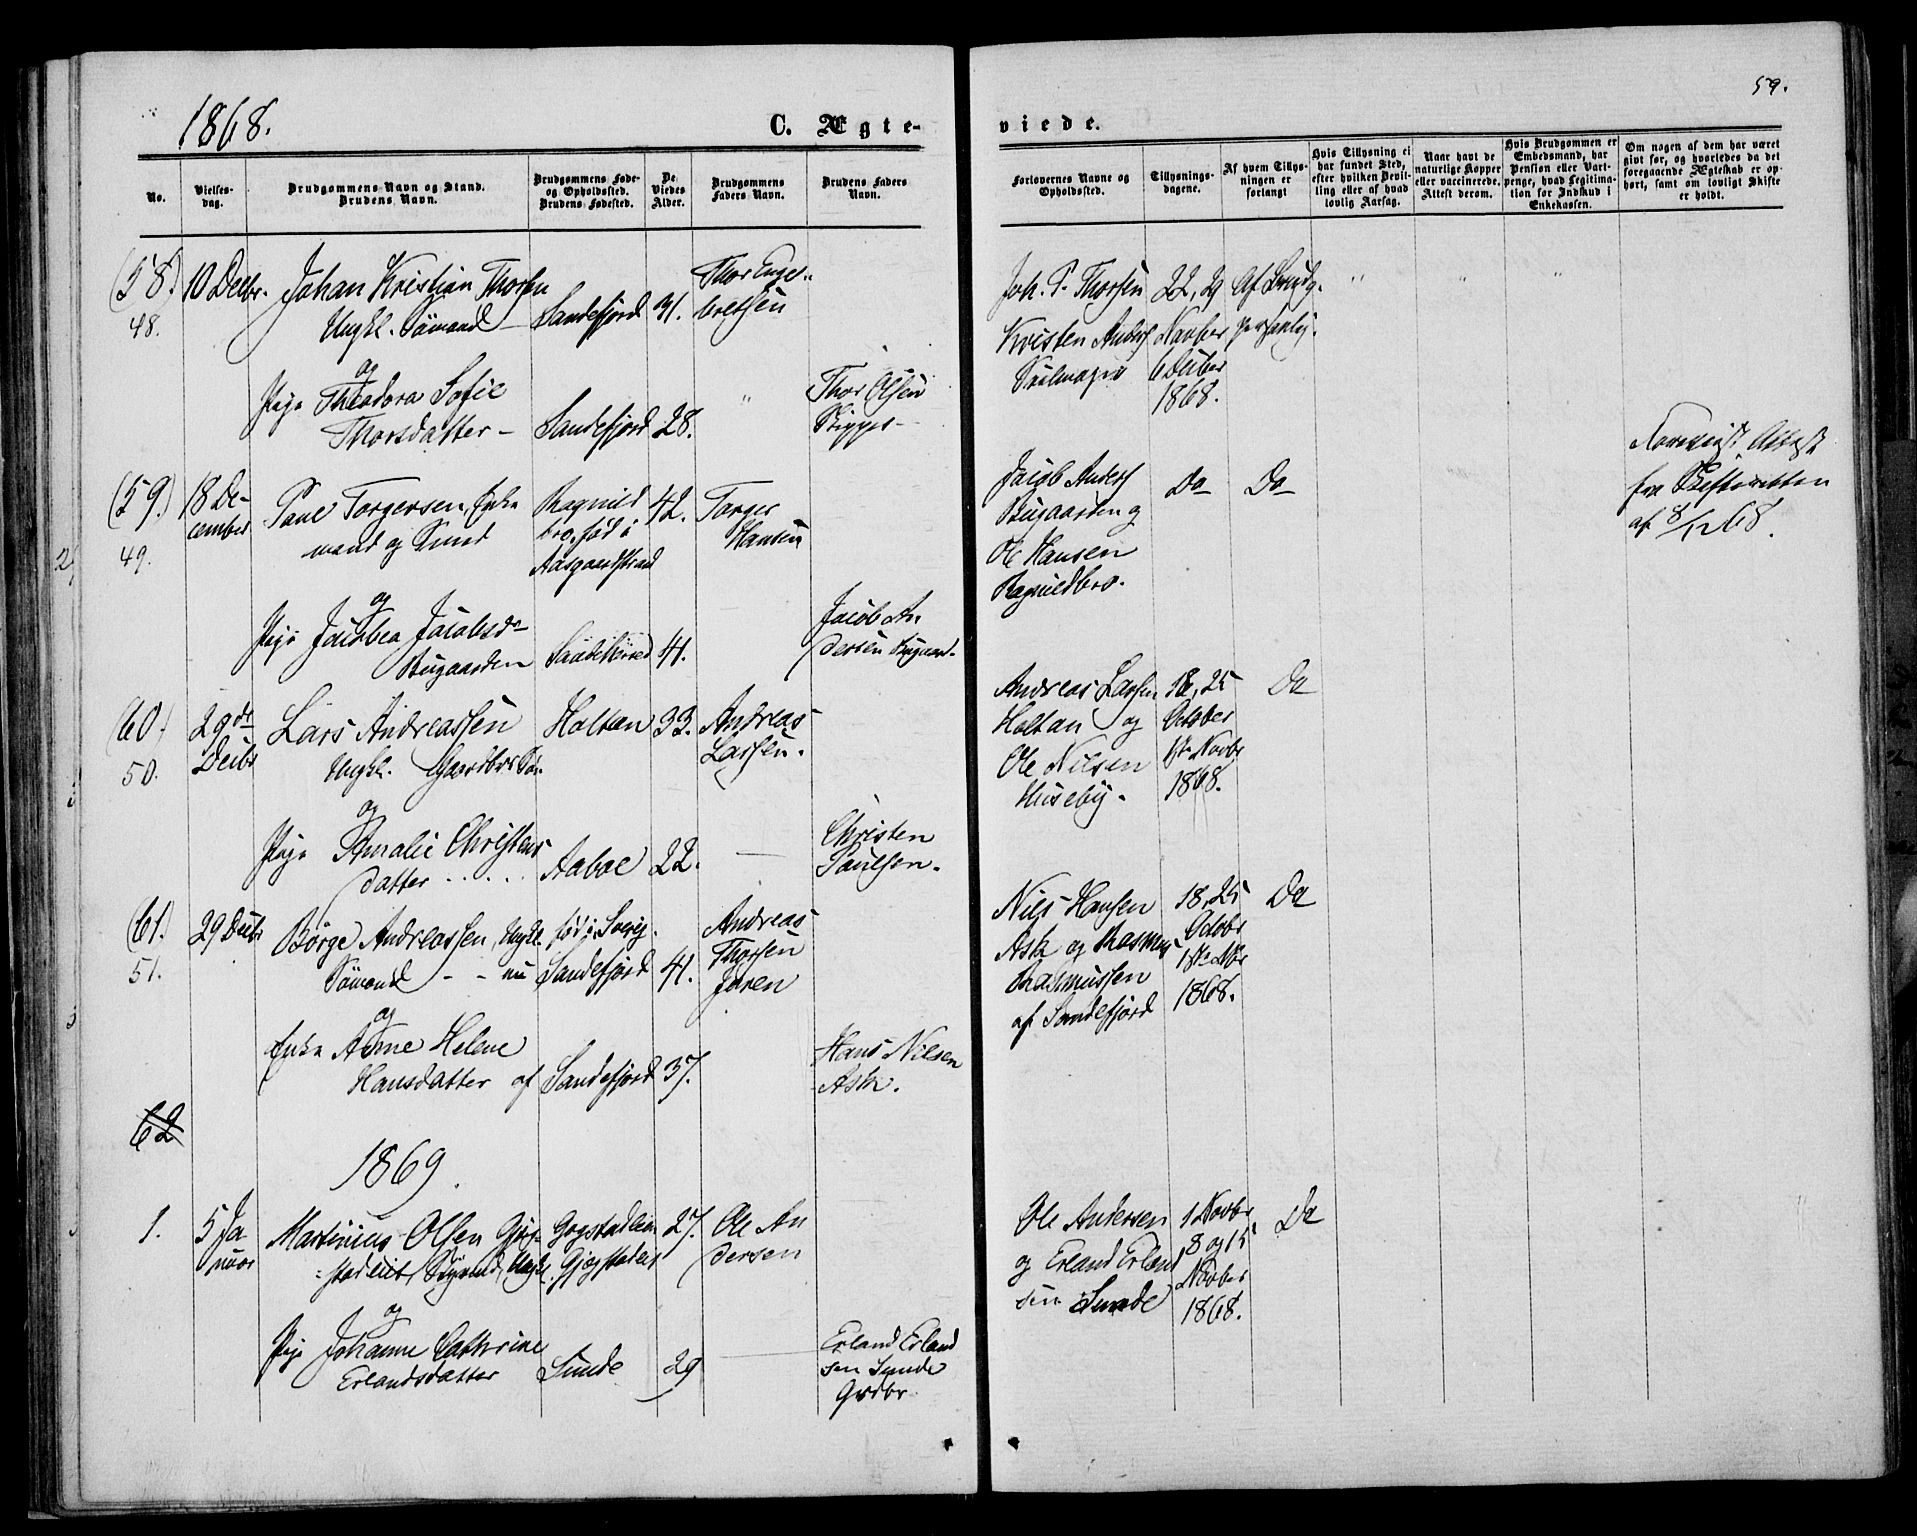 1868.
59.
C. Ægte-
viede.
No.
Vielses-
dag.
Brudgommens Navn og Stand.
Brudens Navn.
Brudgommens Føde-
og Opholdssted.
Brudens Fødested.
De
Viedes
Alder.
Brudgommens
Faders Navn.
Brudens Faders
Navn.
Forlovernes Navne og
Opholdssted.
Tillysnings-
dagene.
Af hvem Tillys-
ningen er
forlangt
Hvis Tillysning ei
har fundet Sted,
efter hvilken Bevil-
ling eller af hvad
lovlig Aarsag.
Naar havt de
naturlige Kopper
eller vaccinerede.
Attest derom.
Hvis Brudgommen er
Embedsmand, har
Pension eller Vart-
penge, hvad Legitima-
tion for Indskud i
Enkekassen.
Om nogen af dem har været
gift før, og hvorledes da det
foregaaende Ægteskab er op-
hørt, samt om lovligt Skifte
er holdt.
(58.)
48.
10 Decbr.
Johan Kristian Thorsen
Ungkl. Sømand
og
Pige Theodora Sofie
Thorsdatter
Sandefjord
Sandefjord
31.
28.
Thor Engel-
bretsen
"
Thor Olsen
Joh. P. Thorsen
Kristen Anders
22, 29
Novber
6 Decber
1868.
Af Brudg.
personlig.
" " "
(59.)
49.
18 De-
cember
Povel Torgersen, Enke
mand og
og
Pige Jacobea Jacobsd
Bugaarden
Ragnild
bro, fød i
Aasgaardstrand
42.
41.
Torger
Hansen
Jacob An-
dersen Bugaard.
Jacob Anders
Bugaarden og
Ole Hansen
Ragnildbro.
Do
Do
Attest
fra Skifteretten
af 8/12 68.
(60.)
50.
29de
Decbr
Lars Andreassen
Ungkl. Gaardbr Søn
og
Pige Amalie Christens
datter
Holtan
Aaboe
33.
22.
Andreas
Larsen.
Christen
Paulsen.
Andreas Larsen
Holtan og
Ole Nilsen
Huseby.
18, 25
October
1ste Novbr
1868.
Do
(61.)
51.
29 Decbr
Børge Andreassen, Ungkl.
Sømand - - nu
og
Enke Anne Helene
Hansdatter af
fød i Sverig.
Sandefjord
Sandefjord
41.
37.
Andreas
Thorsen
Hans Nilsen
Ask.
Nils Hansen
Ask og Rasmus
Rasmussen
af Sandefjord
18, 25
Octobr
1ste Nbr
1868.
Do
62
1869.
1.
5 Ja
nuar
Martinius Olsen Gjog-
stadleiet, Sømand, Ungkl.
og
Pige Johanne Cathrine
Erlandsdatter
Gogstadleie
Gjogstadleie
Sunde
27.
29
Ole An
dersen
Erland Erland
sen Sunde
Grdbr
Ole Andersen
og Erland Erland
sen Sunde
1 Novbr
8 og 15
Novber
1868.
Do